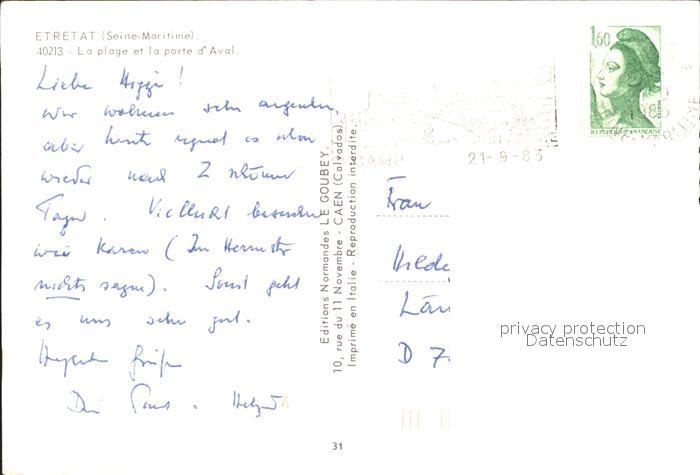 ETRETAT (Seine-Maritime).
40213 - La plage et la porte d'Aval.
Liebe Higgi!
wir wohnen sehr angenehm,
aber heute regnet es schon
wieder nach 2 schönen
Tagen. Vielleicht besuchen
wir Karen (Im Hermes
nichts sagen). Sonst geht
es uns sehr gut.
Herzliche Grüße
Dein
Editions Normandes LE GOUBEY.
10, rue du 11 Novembre - CAEN (Calvados).
Imprimé en Italie - Reproduction interdite.
1,60
REPUBLIQUE FRANÇAISE
CAMP
21-9-83
Frau
Hilde
Län
D 7
privacy protection
Datenschutz
31